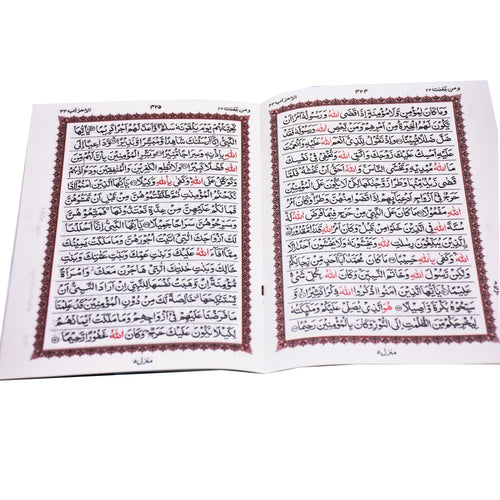 ومن يقنت ٢٢ ٤٢٤ الاحزاب ٣٣
وَمَا كَانَ لِمُؤْمِنٍ وَّلَا مُؤْمِنَةٍ اِذَا قَضَى اللّٰهُ وَرَسُوْلُهٗۤ اَمْرًا اَنْ
يَّكُوْنَ لَهُمُ الْخِيَرَةُ مِنْ اَمْرِهِمْ وَمَنْ يَّعْصِ اللّٰهَ وَرَسُوْلَهٗ فَقَدْ
ضَلَّ ضَلٰلًا مُّبِيْنًا ۝ وَاِذْ تَقُوْلُ لِلَّذِيْۤ اَنْعَمَ اللّٰهُ عَلَيْهِ وَاَنْعَمْتَ
عَلَيْهِ اَمْسِكْ عَلَيْكَ زَوْجَكَ وَاتَّقِ اللّٰهَ وَتُخْفِيْ فِيْ نَفْسِكَ مَا
اللّٰهُ مُبْدِيْهِ وَتَخْشَى النَّاسَ وَاللّٰهُ اَحَقُّ اَنْ تَخْشٰىهُ فَلَمَّا
قَضٰى زَيْدٌ مِّنْهَا وَطَرًا زَوَّجْنٰكَهَا لِكَيْ لَا يَكُوْنَ عَلَى الْمُؤْمِنِيْنَ
حَرَجٌ فِيْۤ اَزْوَاجِ اَدْعِيَآئِهِمْ اِذَا قَضَوْا مِنْهُنَّ وَطَرًا وَكَانَ اَمْرُ
اللّٰهِ مَفْعُوْلًا ۝ مَا كَانَ عَلَى النَّبِيِّ مِنْ حَرَجٍ فِيْمَا فَرَضَ اللّٰهُ لَهٗ
سُنَّةَ اللّٰهِ فِي الَّذِيْنَ خَلَوْا مِنْ قَبْلُ وَكَانَ اَمْرُ اللّٰهِ قَدَرًا مَّقْدُوْرًا ۝
الَّذِيْنَ يُبَلِّغُوْنَ رِسٰلٰتِ اللّٰهِ وَيَخْشَوْنَهٗ وَلَا يَخْشَوْنَ اَحَدًا اِلَّا
اللّٰهَ وَكَفٰى بِاللّٰهِ حَسِيْبًا ۝ مَا كَانَ مُحَمَّدٌ اَبَاۤ اَحَدٍ مِّنْ رِّجَالِكُمْ
وَلٰكِنْ رَّسُوْلَ اللّٰهِ وَخَاتَمَ النَّبِيّٖنَ وَكَانَ اللّٰهُ بِكُلِّ شَيْءٍ
عَلِيْمًا ۝ يٰۤاَيُّهَا الَّذِيْنَ اٰمَنُوا اذْكُرُوا اللّٰهَ ذِكْرًا كَثِيْرًا ۝ وَّ
سَبِّحُوْهُ بُكْرَةً وَّاَصِيْلًا ۝ هُوَ الَّذِيْ يُصَلِّيْ عَلَيْكُمْ وَمَلٰٓئِكَتُهٗ
لِيُخْرِجَكُمْ مِّنَ الظُّلُمٰتِ اِلَى النُّوْرِ وَكَانَ بِالْمُؤْمِنِيْنَ رَحِيْمًا ۝
منزل ٥
ومن يقنت ٢٢ ٤٢٥ الاحزاب ٣٣
تَحِيَّتُهُمْ يَوْمَ يَلْقَوْنَهٗ سَلٰمٌ وَاَعَدَّ لَهُمْ اَجْرًا كَرِيْمًا ۝ يٰۤاَيُّهَا
النَّبِيُّ اِنَّاۤ اَرْسَلْنٰكَ شَاهِدًا وَّمُبَشِّرًا وَّنَذِيْرًا ۝ وَّدَاعِيًا اِلَى
اللّٰهِ بِاِذْنِهٖ وَسِرَاجًا مُّنِيْرًا ۝ وَبَشِّرِ الْمُؤْمِنِيْنَ بِاَنَّ لَهُمْ مِّنَ
اللّٰهِ فَضْلًا كَبِيْرًا ۝ وَلَا تُطِعِ الْكٰفِرِيْنَ وَالْمُنٰفِقِيْنَ وَدَعْ اَذٰىهُمْ
وَتَوَكَّلْ عَلَى اللّٰهِ وَكَفٰى بِاللّٰهِ وَكِيْلًا ۝ يٰۤاَيُّهَا الَّذِيْنَ اٰمَنُوْۤا اِذَا
نَكَحْتُمُ الْمُؤْمِنٰتِ ثُمَّ طَلَّقْتُمُوْهُنَّ مِنْ قَبْلِ اَنْ تَمَسُّوْهُنَّ
فَمَا لَكُمْ عَلَيْهِنَّ مِنْ عِدَّةٍ تَعْتَدُّوْنَهَا فَمَتِّعُوْهُنَّ
وَسَرِّحُوْهُنَّ سَرَاحًا جَمِيْلًا ۝ يٰۤاَيُّهَا النَّبِيُّ اِنَّاۤ اَحْلَلْنَا
لَكَ اَزْوَاجَكَ الّٰتِيْۤ اٰتَيْتَ اُجُوْرَهُنَّ وَمَا مَلَكَتْ يَمِيْنُكَ
مِمَّاۤ اَفَآءَ اللّٰهُ عَلَيْكَ وَبَنٰتِ عَمِّكَ وَبَنٰتِ عَمّٰتِكَ وَبَنٰتِ
خَالِكَ وَبَنٰتِ خٰلٰتِكَ الّٰتِيْ هَاجَرْنَ مَعَكَ وَامْرَاَةً
مُّؤْمِنَةً اِنْ وَّهَبَتْ نَفْسَهَا لِلنَّبِيِّ اِنْ اَرَادَ النَّبِيُّ اَنْ
يَّسْتَنْكِحَهَا خَالِصَةً لَّكَ مِنْ دُوْنِ الْمُؤْمِنِيْنَ قَدْ عَلِمْنَا
مَا فَرَضْنَا عَلَيْهِمْ فِيْۤ اَزْوَاجِهِمْ وَمَا مَلَكَتْ اَيْمَانُهُمْ
لِكَيْلَا يَكُوْنَ عَلَيْكَ حَرَجٌ وَكَانَ اللّٰهُ غَفُوْرًا رَّحِيْمًا ۝
منزل ٥